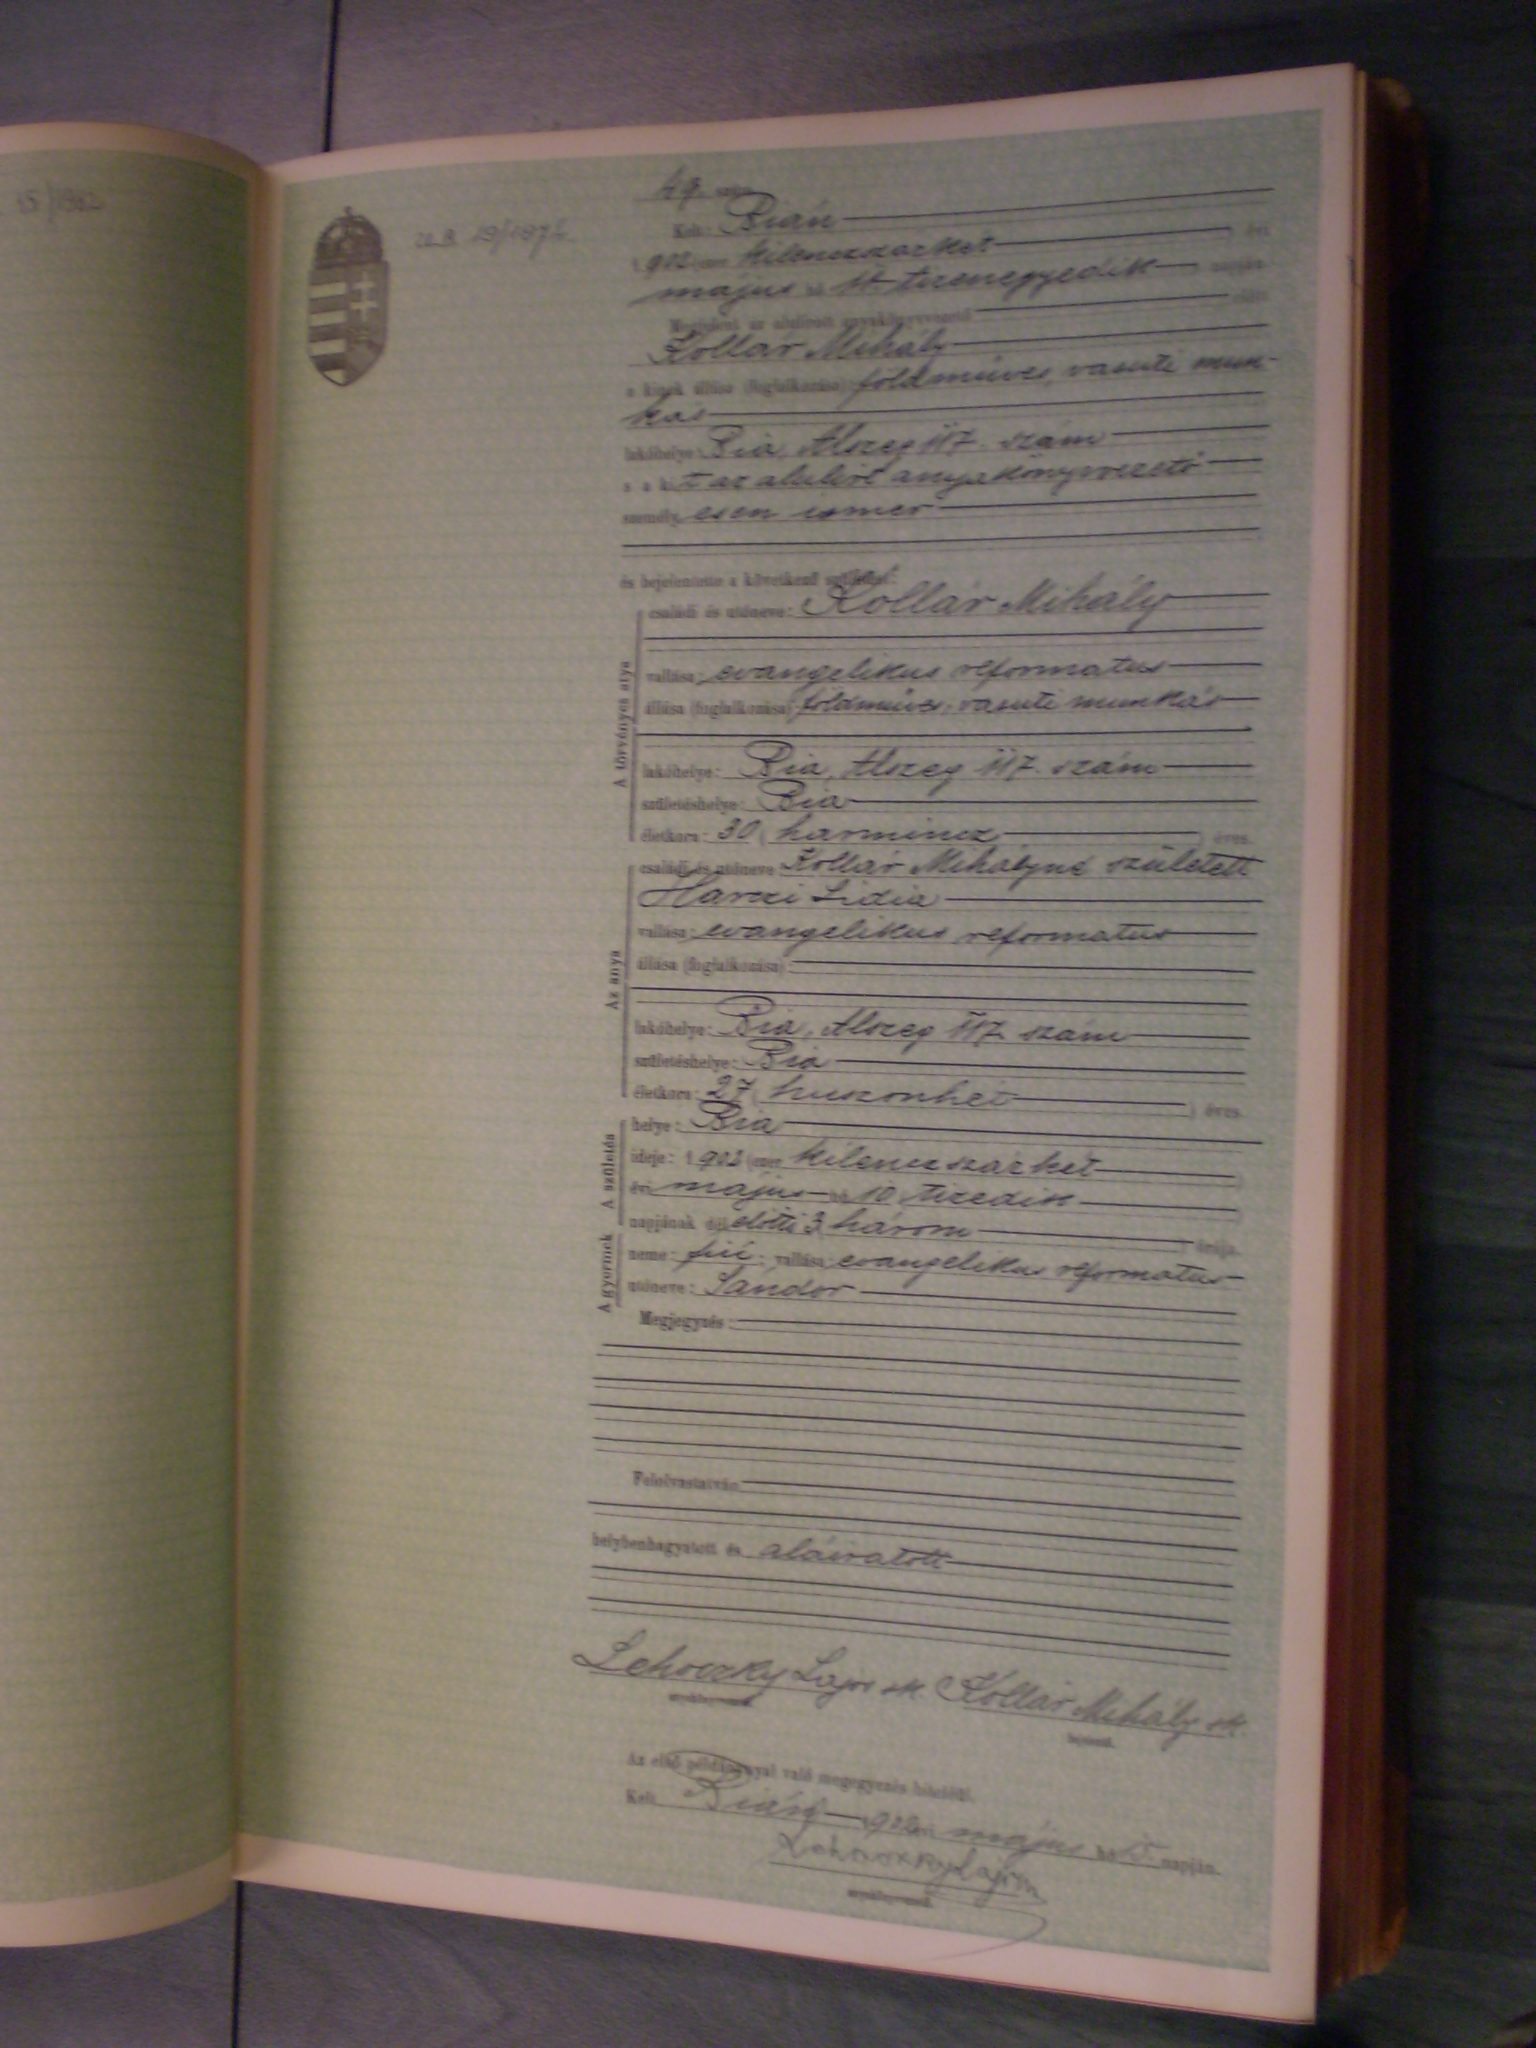 15/1962
U.B. 19/1974.
49. szám
Kelt: Bián
1902 (ezer kilenczszázkét) évi
május hó 11. tizenegyedik napján
Megjelent az alulírott anyakönyvvezető előtt
Kollár Mihály
a kinek állása (foglalkozása) földműves, vasuti mun-
kás
lakóhelye: Bia, Alszeg 117. szám
a kit az alulirt anyakönyvvezető
személyesen ismer
és bejelentette a következő születést:
A törvényes atya
családi és utóneve: Kollár Mihály
vallása: evangelikus reformatus
állása (foglalkozása) földműves, vasuti munkás
lakóhelye: Bia, Alszeg 117. szám
születéshelye: Bia
életkora: 30 (harmincz) éves
Az anya
családi és utóneve: Kollár Mihályné született
Harczi Lidia
vallása: evangelikus reformatus
állása (foglalkozása):
lakóhelye: Bia, Alszeg 117. szám
születéshelye: Bia
életkora: 27 (huszonhét) éves
A születés
helye: Bia
ideje: 1902 (ezer kilenczszázkét)
évi május hó 10 tizedik
napjának délelőtti 3 három órája
A gyermek
neme: fiú; vallása: evangelikus reformatus
utóneve: Sándor
Megjegyzés:
Felolvastatván
helybenhagyatott és aláiratott
Lehoczky Lajos sk. Kollár Mihály sk.
anyakönyvvezető. bejelentő.
Az első példánnyal való megegyezés hiteléül.
Kelt Bián, 1902 évi május hó napján.
Lehoczky Lajos
anyakönyvvezető.